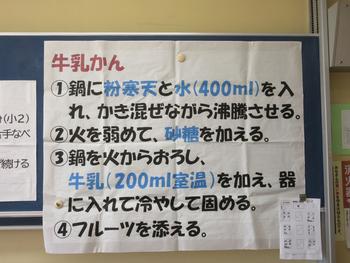 牛乳かん
①鍋に粉寒天と水(400ml)を入
れ、かき混ぜながら沸騰させる。
②火を弱めて、砂糖を加える。
③鍋を火からおろし、
牛乳(200ml室温)を加え、器
に入れて冷やして固める。
④フルーツを添える。
(小2)
片手なべ
続ける